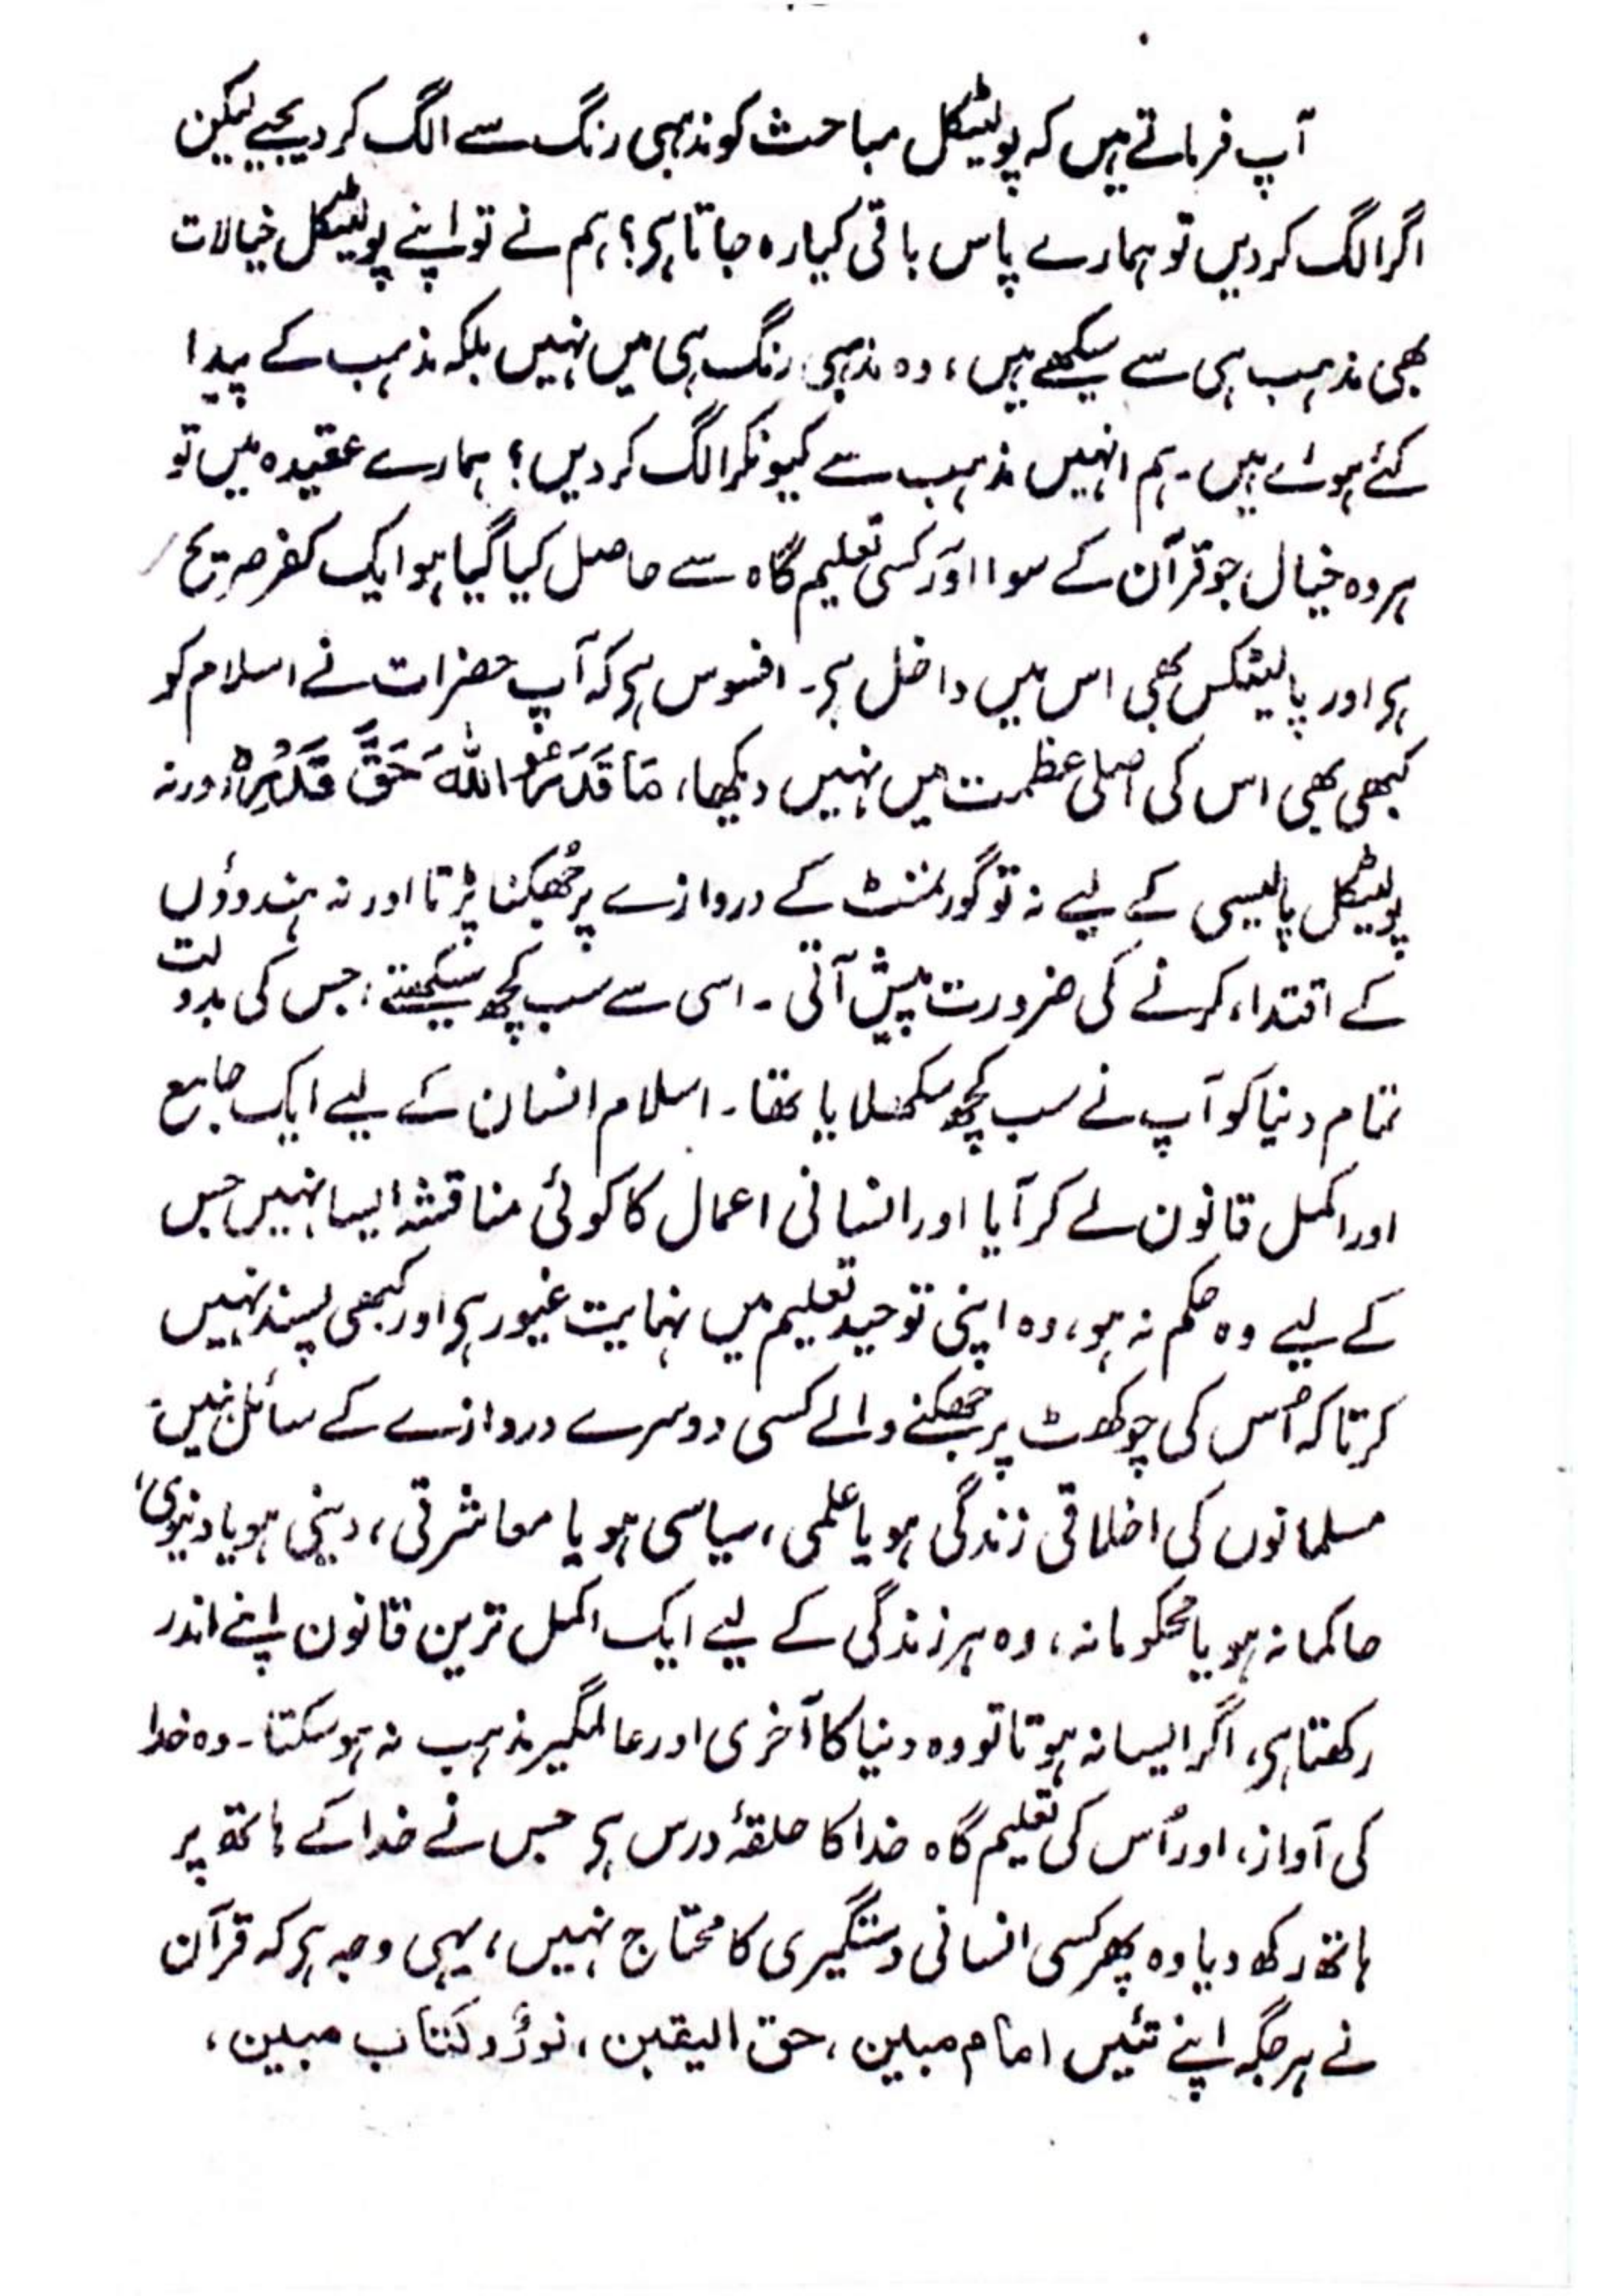 آپ فرماتے ہیں کہ پولیٹکل مباحث کو مذہبی رنگ سے الگ کر دیجیے لیکن
اگر الگ کر دیں تو ہمارے پاس باقی کیا رہ جاتا ہی؟ ہم نے تو اپنے پولیٹکل خیالات
بھی مذہب ہی سے سیکھے ہیں، وہ مذہبی رنگ ہی میں نہیں بلکہ مذہب کے پیدا
کئے ہوئے ہیں۔ ہم انہیں مذہب سے کیونکر الگ کر دیں؟ ہمارے عقیدہ میں تو
ہر وہ خیال جو قرآن کے سوا اور کسی تعلیم گاہ سے حاصل کیا گیا ہو ایک کفر صریح
ہی اور پالیٹکس بھی اس میں داخل ہی۔ افسوس ہی کہ آپ حضرات نے اسلام کو
کبھی بھی اس کی اصلی عظمت میں نہیں دیکھا، مَا قَدَرُوا اللّٰہَ حَقَّ قَدْرِہٖ ورنہ
پولیٹکل پالیسی کے لیے نہ تو گورنمنٹ کے دروازے پر جُھکنا پڑتا اور نہ ہندوؤں
کے اقتداء کرنے کی ضرورت پیش آتی۔ اسی سے سب کچھ سیکھتے، جس کی بدولت
تمام دنیا کو آپ نے سب کچھ سکھلایا تھا۔ اسلام انسان کے لیے ایک جامع
اور اکمل قانون لے کر آیا اور انسانی اعمال کا کوئی مناقشہ ایسا نہیں جس
کے لیے وہ حکم نہ ہو، وہ اپنی توحید تعلیم میں نہایت غیور ہی اور کبھی پسند نہیں
کرتا کہ اُس کی چوکھٹ پر جھکنے والے کسی دوسرے دروازے کے سائل بنیں۔
مسلمانوں کی اخلاقی زندگی ہو یا علمی، سیاسی ہو یا معاشرتی، دینی ہو یا دنیوی،
حاکمانہ ہو یا محکومانہ، وہ ہر زندگی کے لیے ایک اکمل ترین قانون اپنے اندر
رکھتا ہی، اگر ایسا نہ ہوتا تو وہ دنیا کا آخری اور عالمگیر مذہب نہ ہو سکتا۔ وہ خدا
کی آواز، اور اُس کی تعلیم گاہ خدا کا حلقۂ درس ہی جس نے خدا کے ہاتھ پر
ہاتھ رکھ دیا وہ پھر کسی انسانی دستگیری کا محتاج نہیں، یہی وجہ ہی کہ قرآن
نے ہر جگہ اپنے تئیں امام مبین، حق الیقین، نورٌ و کتاب مبین،